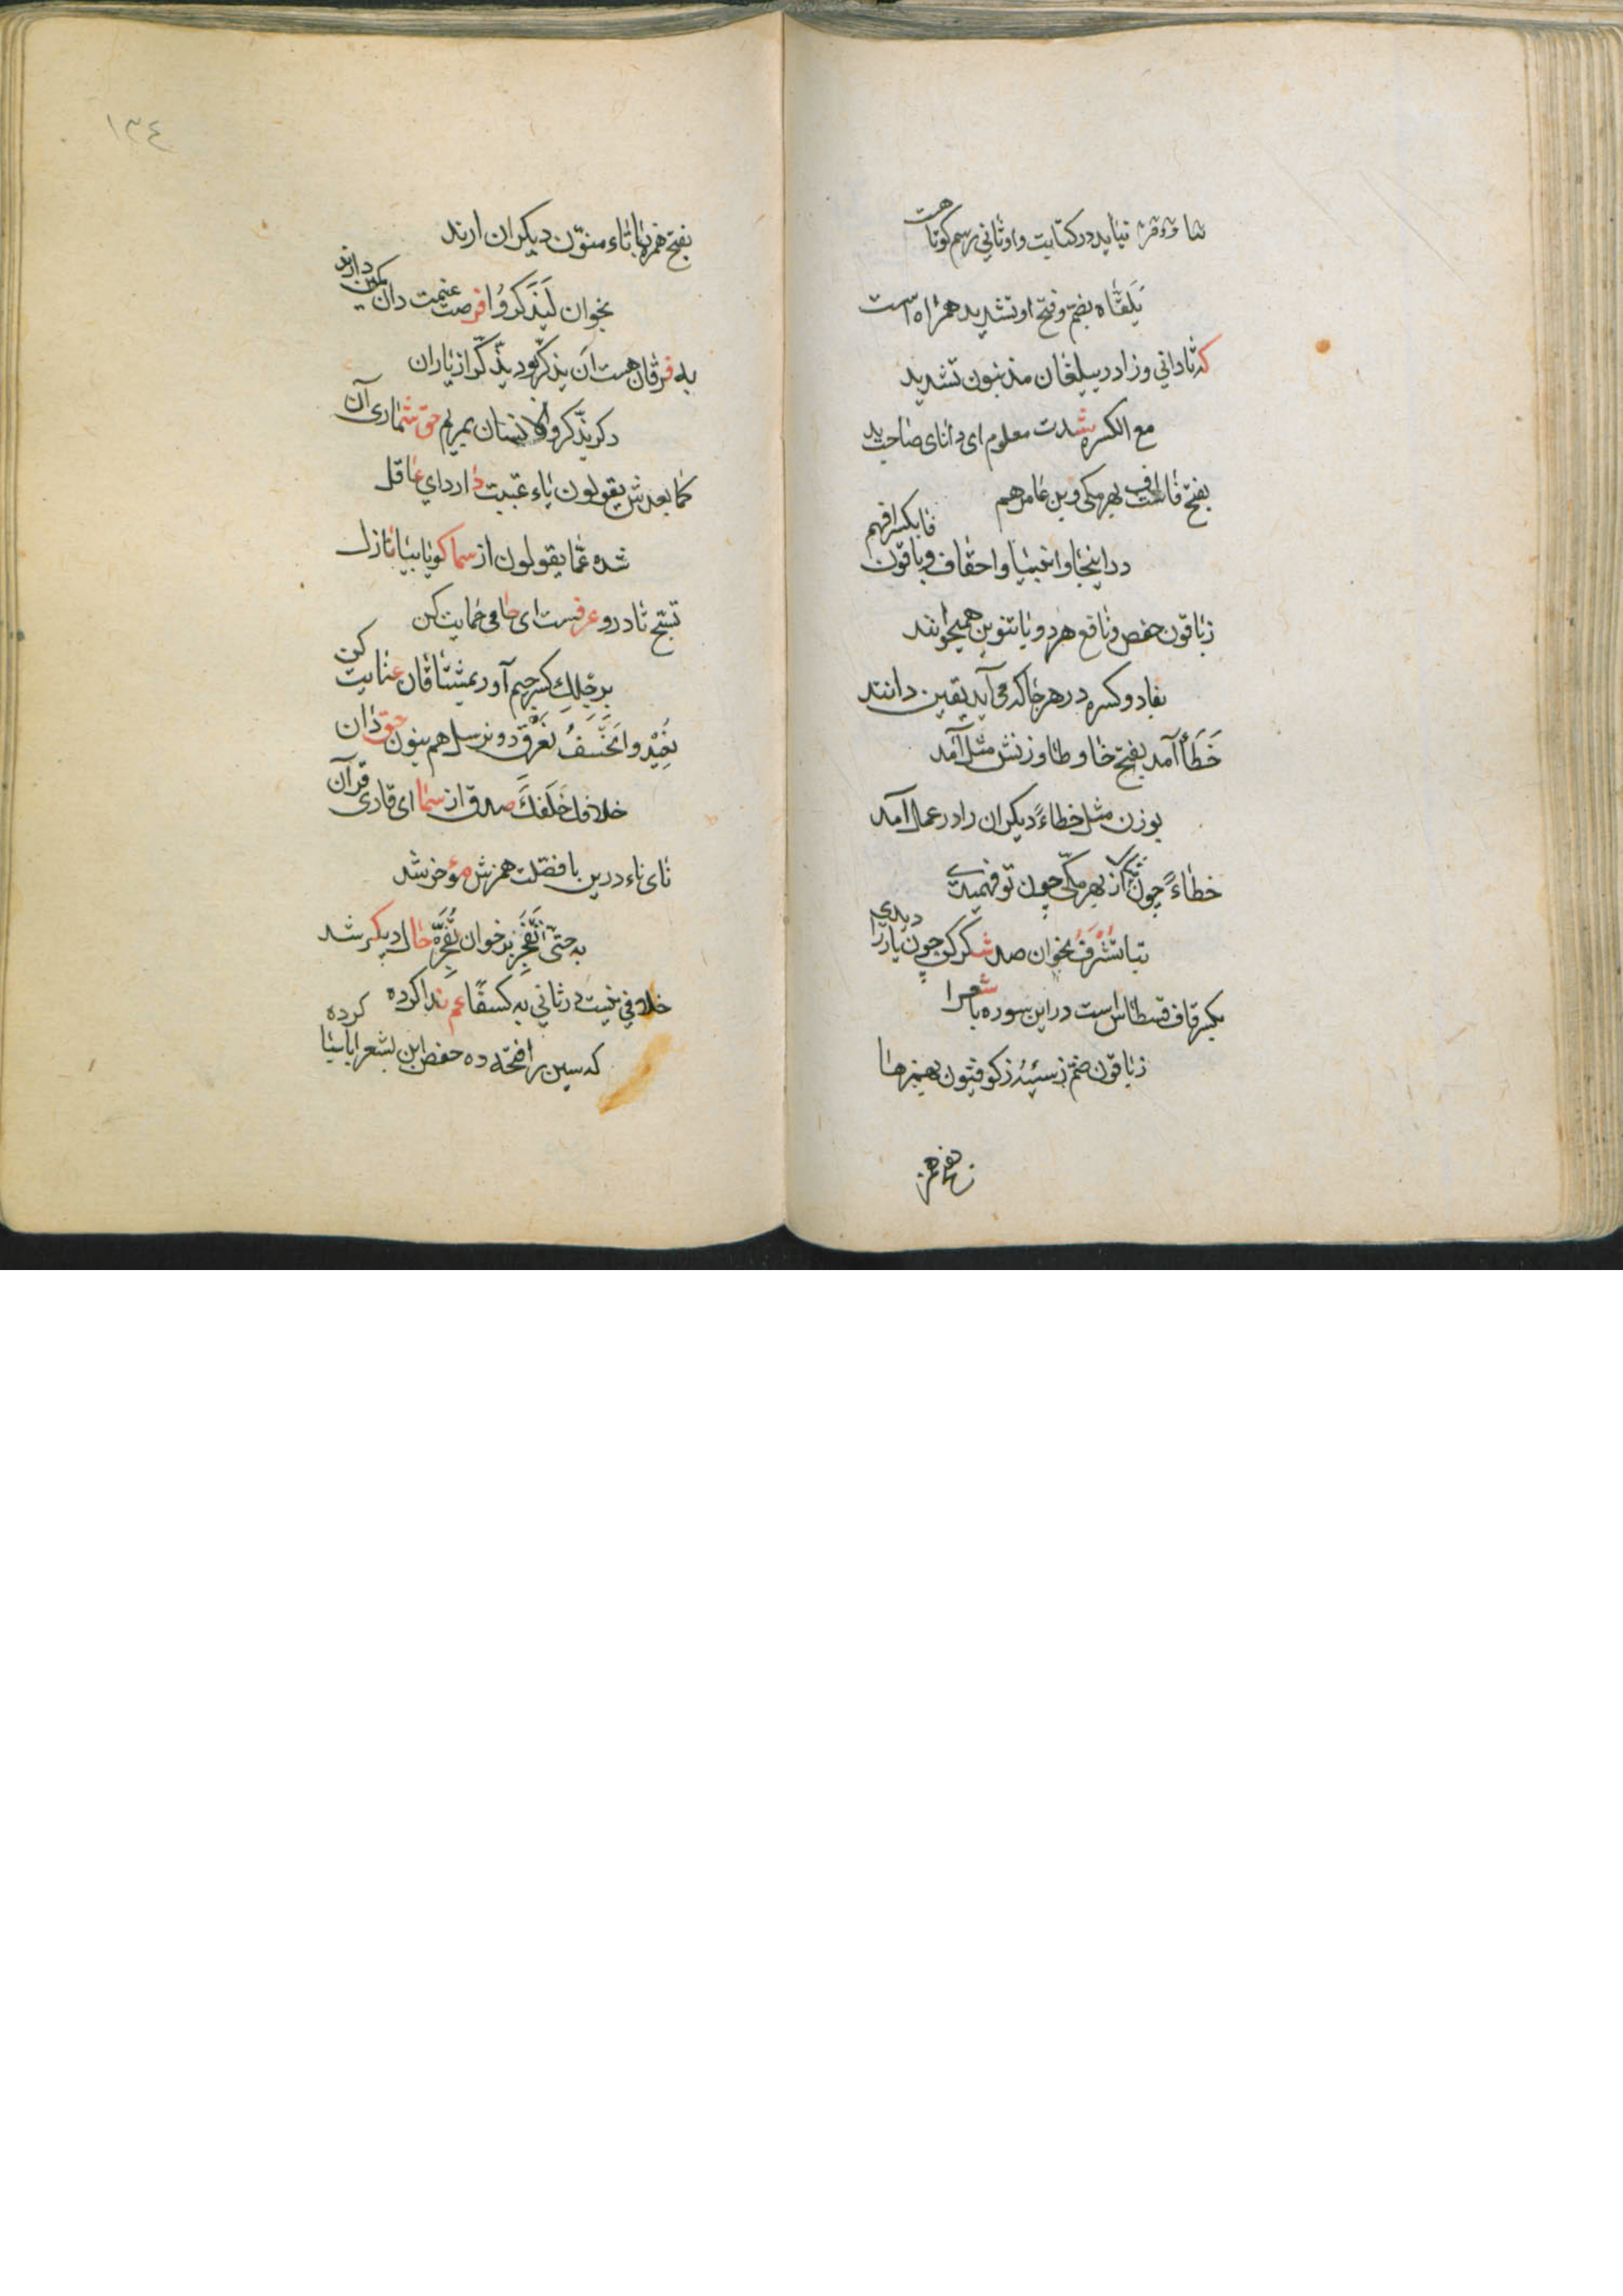 نیاید در کتابت واو ثانی رسم کوتاهست
یَلَقّاه بضم و فتح او تشدید همراه است
که نادانی و زاد در یبلغان مد نبون تشدید
مع الکسره شدت معلوم ای دانای صاحب دید
بفتح فا است اف بهر مکی و بن عامر هم
در اینجا و انبیا و احقاف و باقون فا بکسر افهم
ز باقون حفص و نافع هر دو با تنوین همیخوانند
بفا دو کسره در هر جا که می آید یقین دانند
خَطَأً آمد بفتح خا و طا وزنش مثل آمد
بوزن مثل خطاءً دیکران را در عمل آمد
خطاءً چون از بهر مکی چون تو فهمیدی
بتا تُسْرِفْ بخوان صد شکر کن چون یار را دیدی
بکسر قاف قسطاس است در این سوره با شعرا
ز باقون ضم ز سیّئه ز کوفیّون بهمزها
بفتح همز
١٣٤
بفتح همزه با تاء منوّن دیکران ارند
بخوان لیَذَّکَّرُوا فرصت غنیمت دان
به فرقان هست ان یذکر بود یذّکّر از یاران
دکر یذّکر و الانسان بمریم حق شماری آن
کما بعدش یقولون یاء غیبت دارد ای عاقل
شده عمّا یقولون از سما کویا بیا نازل
تسبّح تا درو عرفست ای حامی حمایت کن
برجلِکِ کسر جیم آور بمشتاقان عنایت کن
نعید و ان نخسف نغرق دو نرسل هم بنون حق دان
خلافک خَلفَکَ صدق از سما ای قاری قرآن
نای ناء درین با فصّلت همزش مؤخر شد
به حتی تَفْجُرَ بر خوان تُفَجِّرَ حال دیکر شد
خلافی نیست در ثانی به کسفًا عم ندا کرده
که سین را فتحه ده حفص این بشعرا با سبا کرده